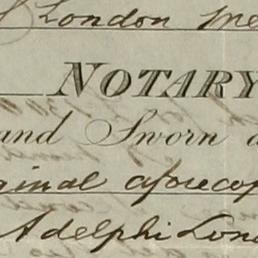 London Me
NOTARY
and Sworn a
ginal aforecop
Adelphi Lond